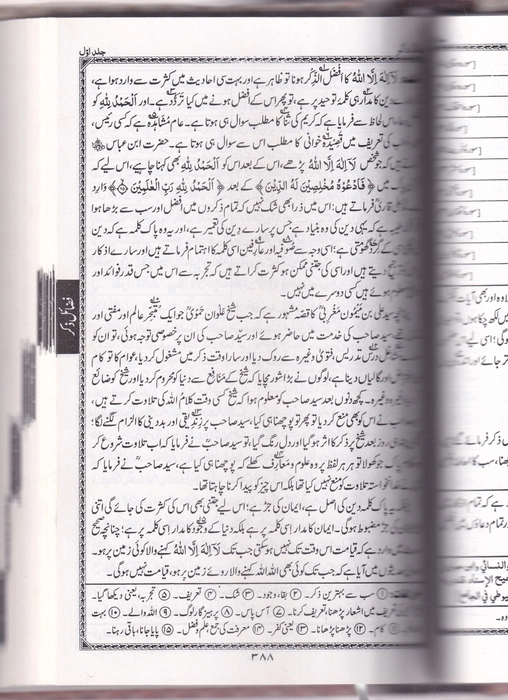 جلد اوّل
لَآ اِلٰهَ اِلَّا اللهُ کا اَفْضَلُ الذِّکْر ہونا تو ظاہر ہے اور بہت سی احادیث میں کثرت سے وارد ہوا ہے،
دین کا مدار ہی کلمۂ توحید پر ہے، تو پھر اس کے افضل ہونے میں کیا تردّد ہے۔ اور اَلْحَمْدُ لِلّٰهِ کو
اس لحاظ سے فرمایا ہے کہ کریم کی ثنا کا مطلب سوال ہی ہوتا ہے۔ عام مشاہدہ ہے کہ کسی رئیس،
کی تعریف میں قصیدہ خوانی کا مطلب اس سے سوال ہی ہوتا ہے۔ حضرت ابن عباس
کہ جو شخص لَآ اِلٰهَ اِلَّا اللهُ پڑھے، اس کے بعد اس کو اَلْحَمْدُ لِلّٰهِ بھی کہنا چاہیے، اس لیے کہ
میں ﴿فَادْعُوْهُ مُخْلِصِیْنَ لَهُ الدِّیْنَ﴾ کے بعد ﴿اَلْحَمْدُ لِلّٰهِ رَبِّ الْعٰلَمِیْنَ﴾ وارد
علی قاری فرماتے ہیں: اس میں ذرا بھی شک نہیں کہ تمام ذکروں میں افضل اور سب سے بڑھا ہوا
ہے کہ یہی دین کی وہ بنیاد ہے جس پر سارے دین کی تعمیر ہے، اور یہ وہ پاک کلمہ ہے کہ دین
کے گرد گھومتی ہے؛ اسی وجہ سے صوفیہ اور عارفین اسی کلمہ کا اہتمام فرماتے ہیں اور سارے اذکار
دیتے ہیں اور اسی کی جتنی ممکن ہو کثرت کراتے ہیں کہ تجربہ سے اس میں جس قدر فوائد اور
معلوم ہوئے ہیں کسی دوسرے میں نہیں۔
سید علی بن میمون مغربی کا قصہ مشہور ہے کہ جب شیخ علوان حموی جو ایک متبحر عالم اور مفتی اور
سید صاحب کی خدمت میں حاضر ہوئے اور سید صاحب کی ان پر خصوصی توجہ ہوئی، تو ان کو
مشاغل درس تدریس، فتویٰ وغیرہ سے روک دیا اور سارا وقت ذکر میں مشغول کر دیا، عوام کا تو کام
اور گالیاں دینا ہے، لوگوں نے بڑا شور مچایا کہ شیخ کے منافع سے دنیا کو محروم کر دیا اور شیخ کو ضائع
وغیرہ۔ کچھ دنوں بعد سید صاحب کو معلوم ہوا کہ شیخ کسی وقت کلام اللہ کی تلاوت کرتے ہیں،
نے اس کو بھی منع کر دیا تو پھر تو پوچھنا ہی کیا، سید صاحب پر زندیقی اور بددینی کا الزام لگنے لگا؛
ہی روز بعد شیخ پر ذکر کا اثر ہو گیا اور دل رنگ گیا، تو سید صاحب نے فرمایا کہ اب تلاوت شروع کر
پاک جو کھولا تو ہر ہر لفظ پر وہ علوم و معارف کھلے کہ پوچھنا ہی کیا ہے، سید صاحب نے فرمایا کہ
خدانخواستہ تلاوت کو منع نہیں کیا تھا بلکہ اس چیز کو پیدا کرنا چاہتا تھا۔
یہ پاک کلمہ دین کی اصل ہے، ایمان کی جڑ ہے؛ اس لیے جتنی بھی اس کی کثرت کی جائے گی اتنی
جڑ مضبوط ہوگی۔ ایمان کا مدار اسی کلمہ پر ہے بلکہ دنیا کے وجود کا مدار اسی کلمہ پر ہے؛ چنانچہ صحیح
میں وارد ہے کہ قیامت اس وقت تک نہیں ہو سکتی جب تک لَآ اِلٰهَ اِلَّا اللهُ کہنے والا کوئی زمین پر ہو۔
میں آیا ہے کہ جب تک کوئی بھی اللہ اللہ کہنے والا روئے زمین پر ہو، قیامت نہیں ہوگی۔
① سب سے بہترین ذکر۔ ② بقاء، وجود۔ ③ شک۔ ④ تعریف۔ ⑤ تجربہ، یعنی دیکھا گیا۔
تعریف میں اشعار پڑھنا، تعریف کرنا۔ ⑦ آس پاس۔ ⑧ پرہیزگار لوگ۔ ⑨ اللہ والے۔ ⑩ بہت
⑪ کام۔ ⑫ پڑھنا پڑھانا۔ ⑬ یعنی کفر۔ ⑭ معرفت کی جمع علم و فضل۔ ⑮ پایا جانا، باقی رہنا۔
فضائل ذکر
۳۸۸